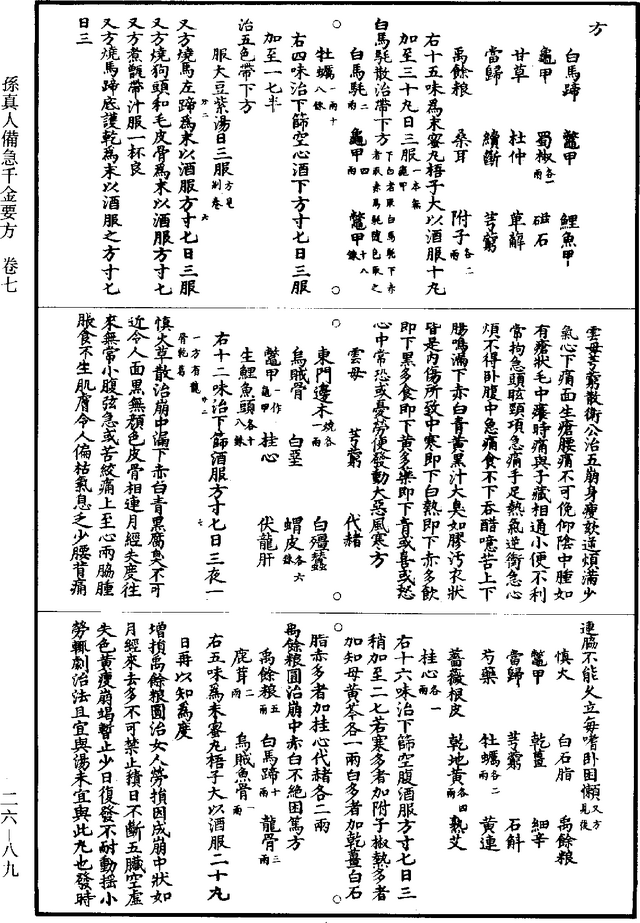 方
白馬蹄　鼈甲　鯉魚甲
龜甲　蜀椒各一兩　磁石
甘草　杜仲　萆薢
當歸　續斷　芎藭
禹餘粮　桑耳　附子各二兩
右十五味為末蜜丸梧子大以酒服十丸
加至三十丸日三服一本無龜甲
白馬䭷散治帶下方下白者取白馬䭷下赤者取赤馬䭷隨色取之
白馬䭷二兩　龜甲四兩　鼈甲十八銖
牡蠣一兩十八銖
右四味治下篩空心酒下方寸匕日三服
加至一匕半
治五色帶下方
服大豆紫湯日三服方見別卷
又方燒馬左蹄為末以酒服方寸匕日三服
又方燒狗頭和毛皮骨為末以酒服方寸匕
又方煮甑帶汁服一杯良
又方燒馬蹄底護乾為末以酒服之方寸匕
日三
雲母芎藭散衛公治五崩身瘦欬逆煩滿少
氣心下痛面生瘡腰痛不可俛仰陰中腫如
有瘡狀毛中癢時痛與子藏相通小便不利
常拘急頭眩頸項急痛手足熱氣逆衝急心
煩不得卧腹中急痛食不下吞醋噫苦上下
腸鳴漏下赤白青黃黑汁大臭如膠汚衣狀
皆是内傷所致中寒即下白熱即下赤多飲
即下黑多食即下黃多藥即下青或喜或怒
心中常恐或憂勞便發動大惡風寒方
雲母　芎藭　代赭
東門邊木燒各一兩　白殭蠶
烏賊骨　白堊　蝟皮各六銖
鼈甲一作龜甲　桂心　伏龍肝
生鯉魚頭各十八銖
右十二味治下篩酒服方寸匕日三夜一
一方有龍骨乾葛
慎火草散治崩中漏下赤白青黑腐臭不可
近令人面黑無顔色皮骨相連月經失度往
來無常小腹弦急或苦絞痛上至心兩脇腫
脹食不生肌膚令人偏枯氣息乏少腰背痛
連脇不能久立每嗜卧困懶又方見後
慎火　白石脂　禹餘粮
鼈甲　乾薑　細辛
當歸　芎藭　石斛
芍藥　牡蠣各二兩　黃連
薔薇根皮　乾地黃各四兩　熟艾
桂心各一兩
右十六味治下篩空腹酒服方寸匕日三
稍加至二匕若寒多者加附子椒熱多者
加知母黃芩各一兩白多者加乾薑白石
脂赤多者加桂心代赭各二兩
禹餘粮圓治崩中赤白不絶困篤方
禹餘粮五兩　白馬蹄十兩　龍骨三兩
鹿茸二兩　烏賊魚骨一兩
右五味為末蜜丸梧子大以酒服二十丸
日再以知為度
增損禹餘粮圓治女人勞損因成崩中狀如
月經來去多不可禁止積日不斷五臟空虛
失色黃瘦崩竭暫止少日復發不耐動搖小
勞輒劇治法且宜與湯未宜與此丸也發時
孫真人備急千金要方　卷七
二六—八九